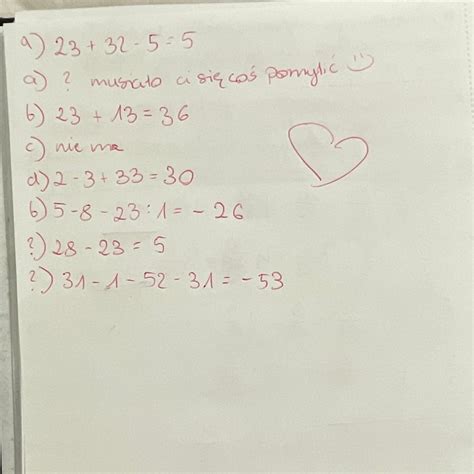 a) 23 + 32 - 5 = 5
a) ? musiało ci się coś pomylić :)
b) 23 + 13 = 36
c) nie ma
d) 2 - 3 + 33 = 30
b) 5 - 8 - 23 : 1 = - 26
?) 28 - 23 = 5
?) 31 - 1 - 52 - 31 = - 53